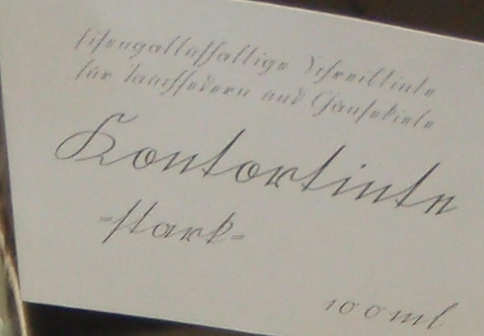 Eisengallushaltige Schreibtinte
für Tauchfedern und Gänsekiele
Kontortinte
-stark-
100ml